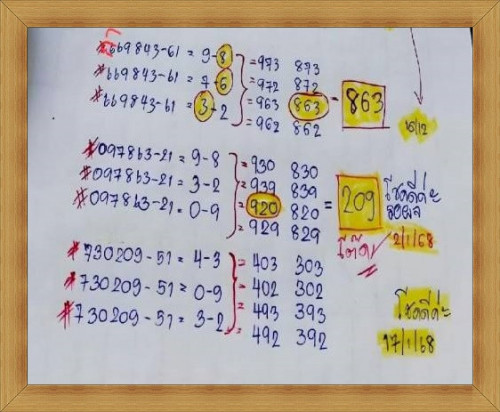 *669843-61 = 9-8 = 973 873
*669843-61 = 7-6 = 972 872
*669843-61 = 3-2 = 963 863 = 863
= 962 862
16/12
*097863-21 = 9-8 = 930 830
*097863-21 = 3-2 = 939 839
*097863-21 = 0-9 = 920 820 = 209 โชคดีค่ะ
= 929 829
โต๊ด 2/1/68
*730209-51 = 4-3 = 403 303
*730209-51 = 0-9 = 402 302
*730209-51 = 3-2 = 493 393
= 492 392
โชคดีค่ะ
17/1/68